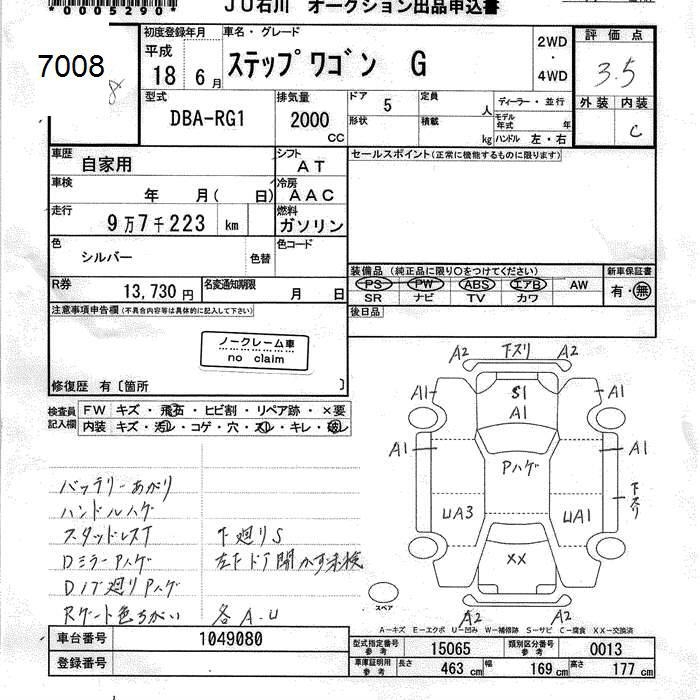 *0005290*
JU石川 オークション出品申込書
7008
8
初度登録年月
平成
18 6月
車名・グレード
ステップワゴン G
2WD
・
4WD
評価点
3.5
外装 内装
C
型式
DBA-RG1
排気量
2000
CC
ドア 5
定員 人
ディーラー・並行
形状
積載 kg
モデル年式 年
ハンドル 左・右
車歴
自家用
シフト
AT
セールスポイント(正常に機能するものに限ります)
車検
年 月( 日)
冷房
AAC
走行
9万7千223 km
燃料
ガソリン
色
シルバー
色替
色コード
装備品 (純正品に限り○をつけてください)
新車保証書
PS PW ABS エアB AW
SR ナビ TV カワ
有・無
R券
13,730円
名変通知期限
月 日
後日品
注意事項申告欄(不具合内容等は具体的に記入して下さい)
ノークレーム車
no claim
修復歴 有〔箇所 〕
検査員記入欄
FW キズ・飛石・ヒビ割・リペア跡・×要
内装 キズ・汚レ・コゲ・穴・スレ・キレ・破レ
A2 下スリ A2
A1 S1 A1
A1
A1 A1
Pハゲ
下スリ
UA3 UA1
XX
スペア
A2 A2
バッテリーあがり
ハンドルハゲ
スタッドレスT 下廻りS
DミラーPハゲ 左Fドア開かず未検
Dノブ廻りPハゲ
Rゲート色ちがい 各A.U
A―キズ E―エクボ U―凹み W―補修跡 S―サビ C―腐食 XX―交換済
車台番号 1049080
型式指定番号 参考 15065
類別区分番号 参考 0013
登録番号
車庫証明用 参考 長さ 463 cm 幅 169 cm 高さ 177 cm